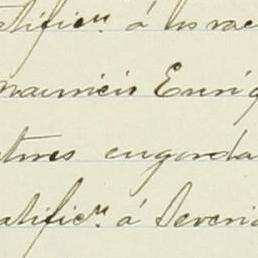 ratificⁿ á los vac
Mauricio Enriq
tures engorda
ratificⁿ á Severia